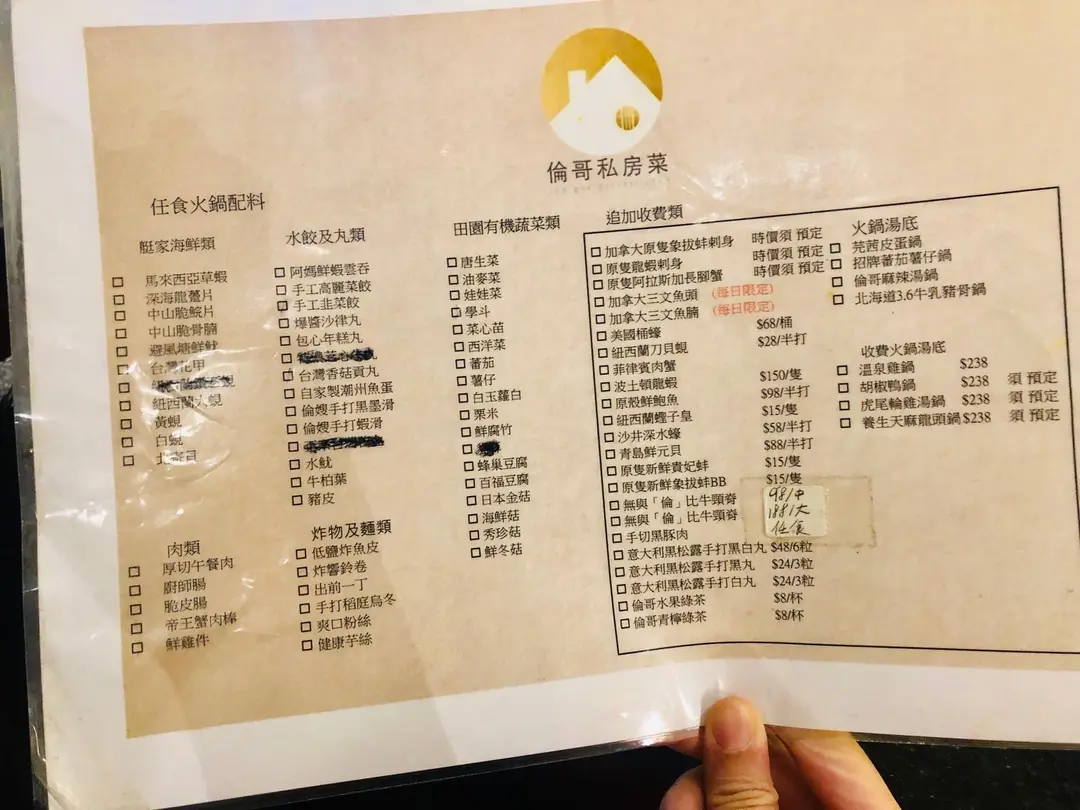 倫哥私房菜
任食火鍋配料
艇家海鮮類
□ 馬來西亞草蝦
□ 深海龍躉片
□ 中山脆鯇片
□ 中山脆骨腩
□ 避風塘鮮魷
□ 台灣花甲
□
□ 紐西蘭大蜆
□ 黃蜆
□ 白蜆
□ 北寄貝
肉類
□ 厚切午餐肉
□ 廚師腸
□ 脆皮腸
□ 帝王蟹肉棒
□ 鮮雞件
水餃及丸類
□ 阿媽鮮蝦雲吞
□ 手工高麗菜餃
□ 手工韭菜餃
□ 爆醬沙律丸
□ 包心年糕丸
□
□ 台灣香菇貢丸
□ 自家製潮州魚蛋
□ 倫嫂手打黑墨滑
□ 倫嫂手打蝦滑
□
□ 水魷
□ 牛柏葉
□ 豬皮
炸物及麵類
□ 低鹽炸魚皮
□ 炸響鈴卷
□ 出前一丁
□ 手打稻庭烏冬
□ 爽口粉絲
□ 健康芋絲
田園有機蔬菜類
□ 唐生菜
□ 油麥菜
□ 娃娃菜
□ 學斗
□ 菜心苗
□ 西洋菜
□ 蕃茄
□ 薯仔
□ 白玉蘿白
□ 栗米
□ 鮮腐竹
□
□ 蜂巢豆腐
□ 百福豆腐
□ 日本金菇
□ 海鮮菇
□ 秀珍菇
□ 鮮冬菇
追加收費類
□ 加拿大原隻象拔蚌刺身 時價須 預定
□ 原隻龍蝦刺身 時價須 預定
□ 原隻阿拉斯加長腳蟹 時價須 預定
□ 加拿大三文魚頭 (每日限定)
□ 加拿大三文魚腩 (每日限定)
□ 美國桶蠔 $68/桶
□ 紐西蘭刀貝蜆 $28/半打
□ 菲律賓肉蟹
□ 波士頓龍蝦 $150/隻
□ 原殼鮮鮑魚 $98/半打
□ 紐西蘭蟶子皇 $15/隻
□ 沙井深水蠔 $58/半打
□ 青島鮮元貝 $88/半打
□ 原隻新鮮貴妃蚌 $15/隻
□ 原隻新鮮象拔蚌BB $15/隻
□ 無與「倫」比牛頸脊
□ 無與「倫」比牛頸脊
□ 手切黑豚肉
98/中
188/大
任食
□ 意大利黑松露手打黑白丸 $48/6粒
□ 意大利黑松露手打黑丸 $24/3粒
□ 意大利黑松露手打白丸 $24/3粒
□ 倫哥水果綠茶 $8/杯
□ 倫哥青檸綠茶 $8/杯
火鍋湯底
□ 芫茜皮蛋鍋
□ 招牌蕃茄薯仔鍋
□ 倫哥麻辣湯鍋
□ 北海道3.6牛乳豬骨鍋
收費火鍋湯底
□ 溫泉雞鍋 $238
□ 胡椒鴨鍋 $238 須 預定
□ 虎尾輪雞湯鍋 $238 須 預定
□ 養生天麻龍頭鍋 $238 須 預定